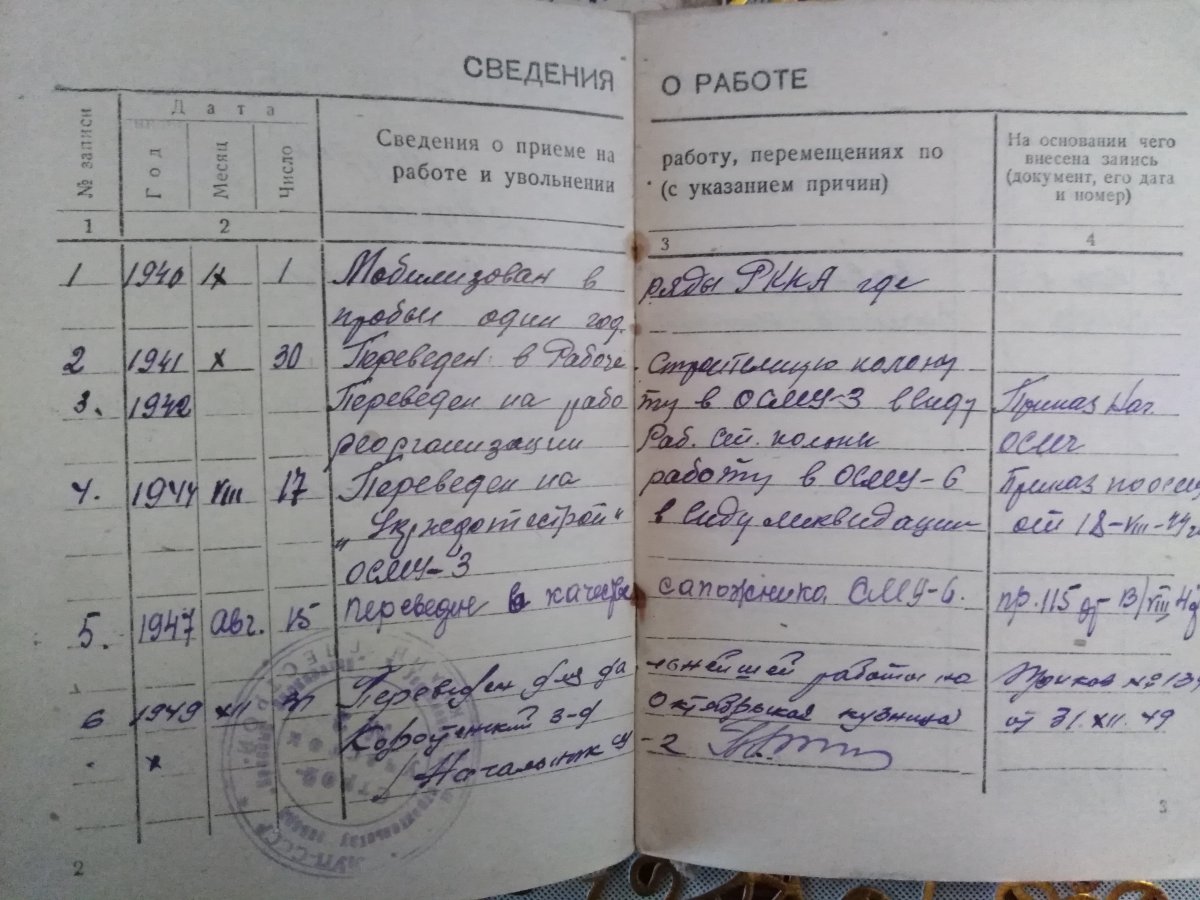 СВЕДЕНИЯ О РАБОТЕ
№ записи
Дата
Год
Месяц
Число
Сведения о приеме на работу, перемещениях по
работе и увольнении (с указанием причин)
На основании чего
внесена запись
(документ, его дата
и номер)
1 2 3 4
1 1940 IX 1 Мобилизован в ряды РККА где
пробыл один год.
2 1941 X 30 Переведен в Рабоче-строительную колону
3. 1942 Переведен на работу в ОСМУ-3 ввиду Приказ Нач.
реорганизации Раб. ст. колоны ОСМЧ
4. 1944 VIII 17 Переведен на работу в ОСМУ-6 Приказ по ОСМЧ
в виду ликвидации от 18-VIII-44г
ОСМУ-3
5. 1947 авг. 15 переведен в качестве сапожника СМУ-6. пр. 115 от 13/VIII 47
6 1949 XII 31 Переведен для дальнейшей работы на Приказ № 134
з-д Октябрьская кузница от 31.XII.49
Начальник
СССР
2
3